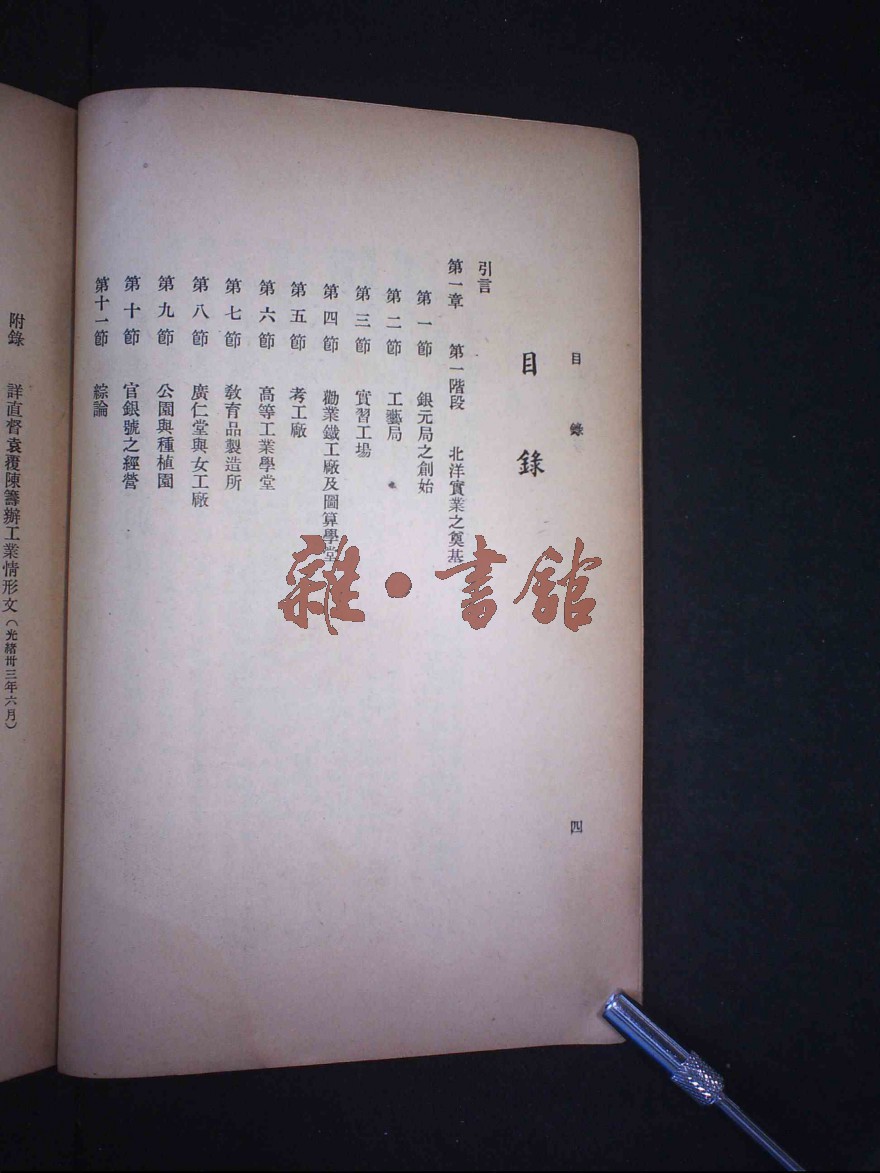 目錄
四
目錄
引言
第一章 第一階段 北洋實業之奠基
第一節 銀元局之創始
第二節 工藝局
第三節 實習工場
第四節 勸業鐵工廠及圖算學堂
第五節 考工廠
第六節 高等工業學堂
第七節 教育品製造所
第八節 廣仁堂與女工廠
第九節 公園與種植園
第十節 官銀號之經營
第十一節 綜論
附錄 詳直督袁覆陳籌辦工業情形文（光緒卅三年六月）
雜·書館